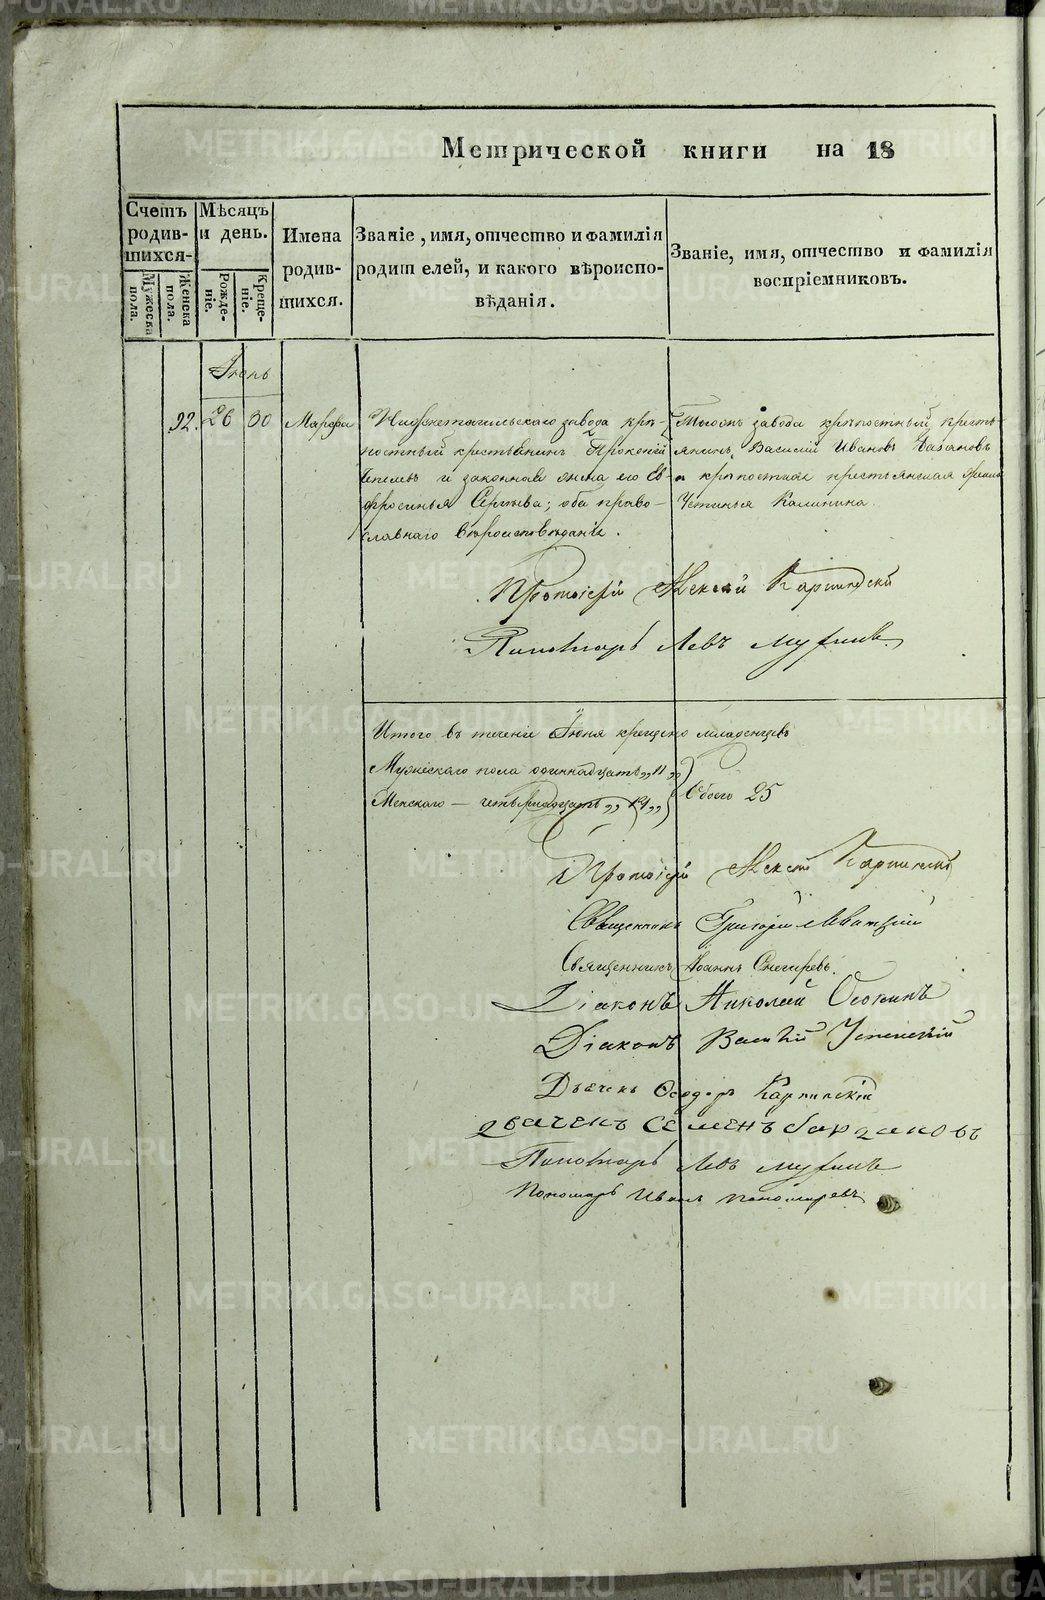 Метрической книги на 18
Счетъ родив-шихся-
Мѣсяцъ и день.
Имена родив-шихся.
Званіе, имя, отчество и фамилія родителей, и какого вѣроиспо-вѣданія.
Званіе, имя, отчество и фамилія воспріемниковъ.
Мужеска пола.
Женска пола.
Рожде-ніе.
Креще-ніе.
Іюнь
92. 26 30 Марфа
Нижнетагильскаго завода крѣ-
постный крестьянинъ Прокопій
и законная жена его Ев-
фросинья Сергѣева; оба право-
славнаго вѣроисповѣданія.
Тогожъ завода крѣпостный кресть-
янинъ Василій Ивановъ
и крѣпостная крестьянская
Устинья Калинина.
Протоіерей Алексій Карпинскій
Пономарь Левъ
Итого въ теченіе Іюня крещено младенцевъ
Мужескаго пола одиннадцать „11„
Женскаго — четырнадцать „14„
Обоего 25
Протоіерей Алексій Карпинскій
Священникъ Григорій
Священникъ Іоаннъ Снегиревъ.
Діаконъ Николай Осокинъ
Діаконъ Василій Успенскій
Дьячекъ Ѳеодоръ Карпинскій
дьячекъ Семенъ
Пономарь Левъ
Пономарь Иванъ Пономаревъ
METRIKI.GASO-URAL.RU